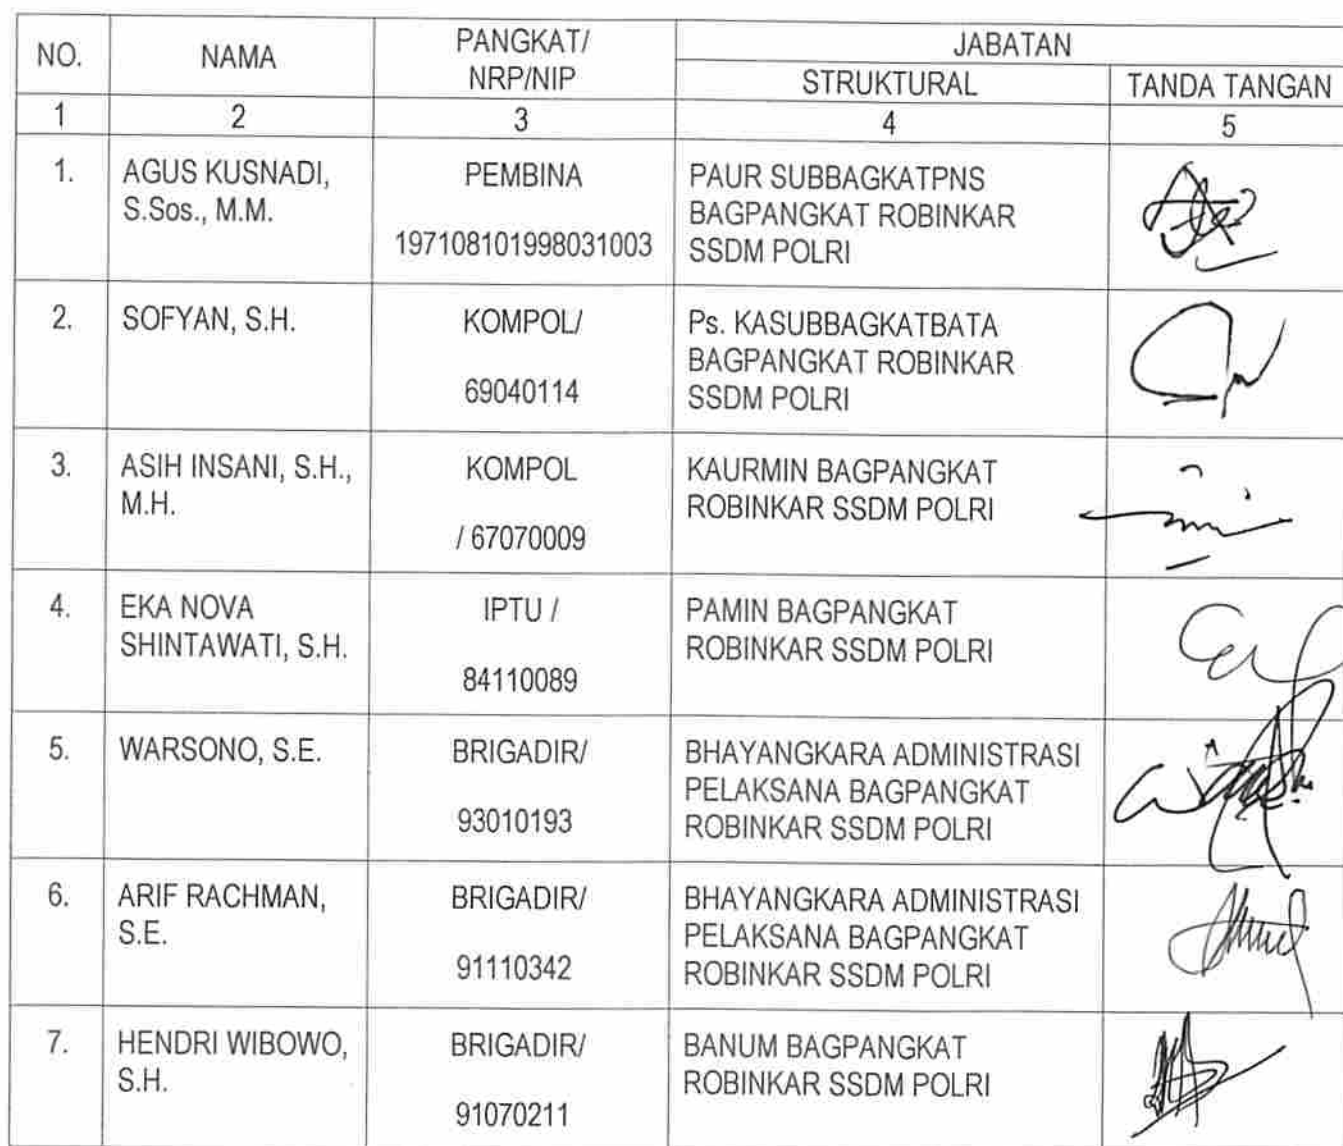 NO.
NAMA
PANGKAT/
NRP/NIP
JABATAN
STRUKTURAL
TANDA TANGAN
1
2
3
4
5
1.
AGUS KUSNADI,
S.Sos., M.M.
PEMBINA
197108101998031003
PAUR SUBBAGKATPNS
BAGPANGKAT ROBINKAR
SSDM POLRI
2.
SOFYAN, S.H.
KOMPOL/
69040114
Ps. KASUBBAGKATBATA
BAGPANGKAT ROBINKAR
SSDM POLRI
3.
ASIH INSANI, S.H.,
M.H.
KOMPOL
/ 67070009
KAURMIN BAGPANGKAT
ROBINKAR SSDM POLRI
4.
EKA NOVA
SHINTAWATI, S.H.
IPTU /
84110089
PAMIN BAGPANGKAT
ROBINKAR SSDM POLRI
5.
WARSONO, S.E.
BRIGADIR/
93010193
BHAYANGKARA ADMINISTRASI
PELAKSANA BAGPANGKAT
ROBINKAR SSDM POLRI
6.
ARIF RACHMAN,
S.E.
BRIGADIR/
91110342
BHAYANGKARA ADMINISTRASI
PELAKSANA BAGPANGKAT
ROBINKAR SSDM POLRI
7.
HENDRI WIBOWO,
S.H.
BRIGADIR/
91070211
BANUM BAGPANGKAT
ROBINKAR SSDM POLRI